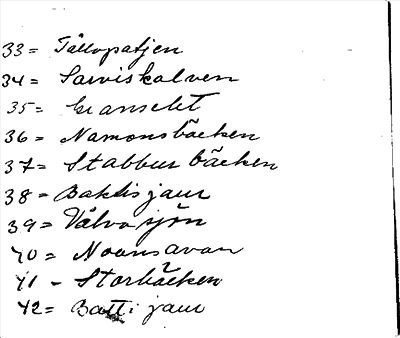 33 = Tållopatjen
34 = Sarviskalven
35 = Granselet
36 = Namonsbäcken
37 = Stabbur bäcken
38 = Baktisjaur
39 = Vålvosjön
40 = Noonsavan
41 - Storbäcken
42 = Batti jaur